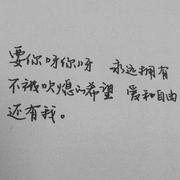 要你呀你呀 永远拥有
不被吹熄的希望 爱和自由
还有我。